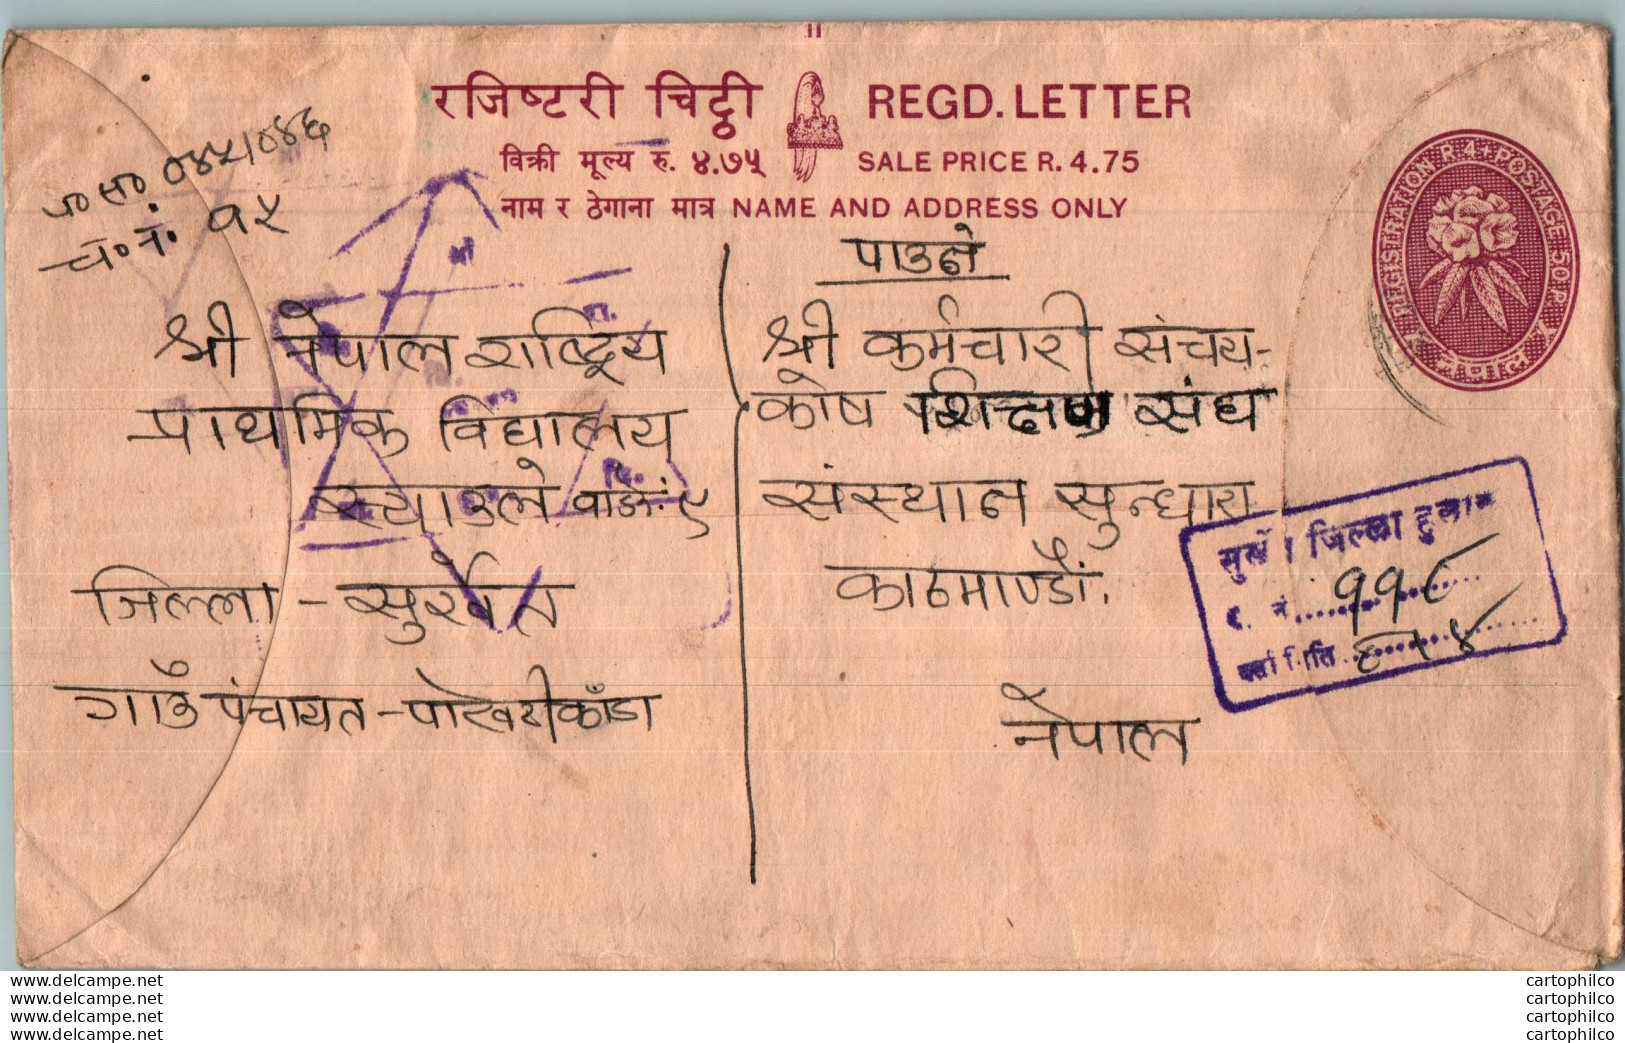 रजिष्टरी चिट्ठी REGD. LETTER
विक्री मूल्य रु. ४.७५ SALE PRICE R. 4.75
नाम र ठेगाना मात्र NAME AND ADDRESS ONLY
REGISTRATION R.4 + POSTAGE 50 P.
नेपाल
प० स० ०४५/०४६
च० नं० १५
श्री नेपाल राष्ट्रिय
प्राथमिक विद्यालय
जिल्ला - सुर्खेत
गाउँ पंचायत - पोखरीकाँडा
पाउने
श्री कर्मचारी संचय-
कोष शिक्षण संघ
संस्थान सुन्धारा
काठमाण्डौं.
नेपाल
सुर्खेत जिल्ला हुलाक
नं. ११८
दर्ता मिति
www.delcampe.net cartophilco
www.delcampe.net cartophilco
www.delcampe.net cartophilco
www.delcampe.net cartophilco